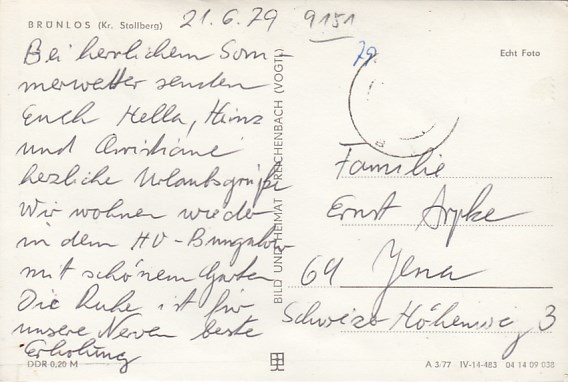 BRÜNLOS (Kr. Stollberg)
21.6.79
9151
79
Echt Foto
Bei herrlichem Som-
merwetter senden
Euch Hella, Heinz
und Christiane
herzliche Urlaubsgrüße
Wir wohnen wieder
in dem HV-Bungalow
mit schönem Garten
Die Ruhe ist für
unsere Nerven beste
Erholung
BILD UND HEIMAT REICHENBACH (VOGTL)
Familie
Ernst Arpke
69 Jena
Schweizer Höhenweg 3
DDR 0,20 M
A 3/77 IV-14-483 04 14 09 038